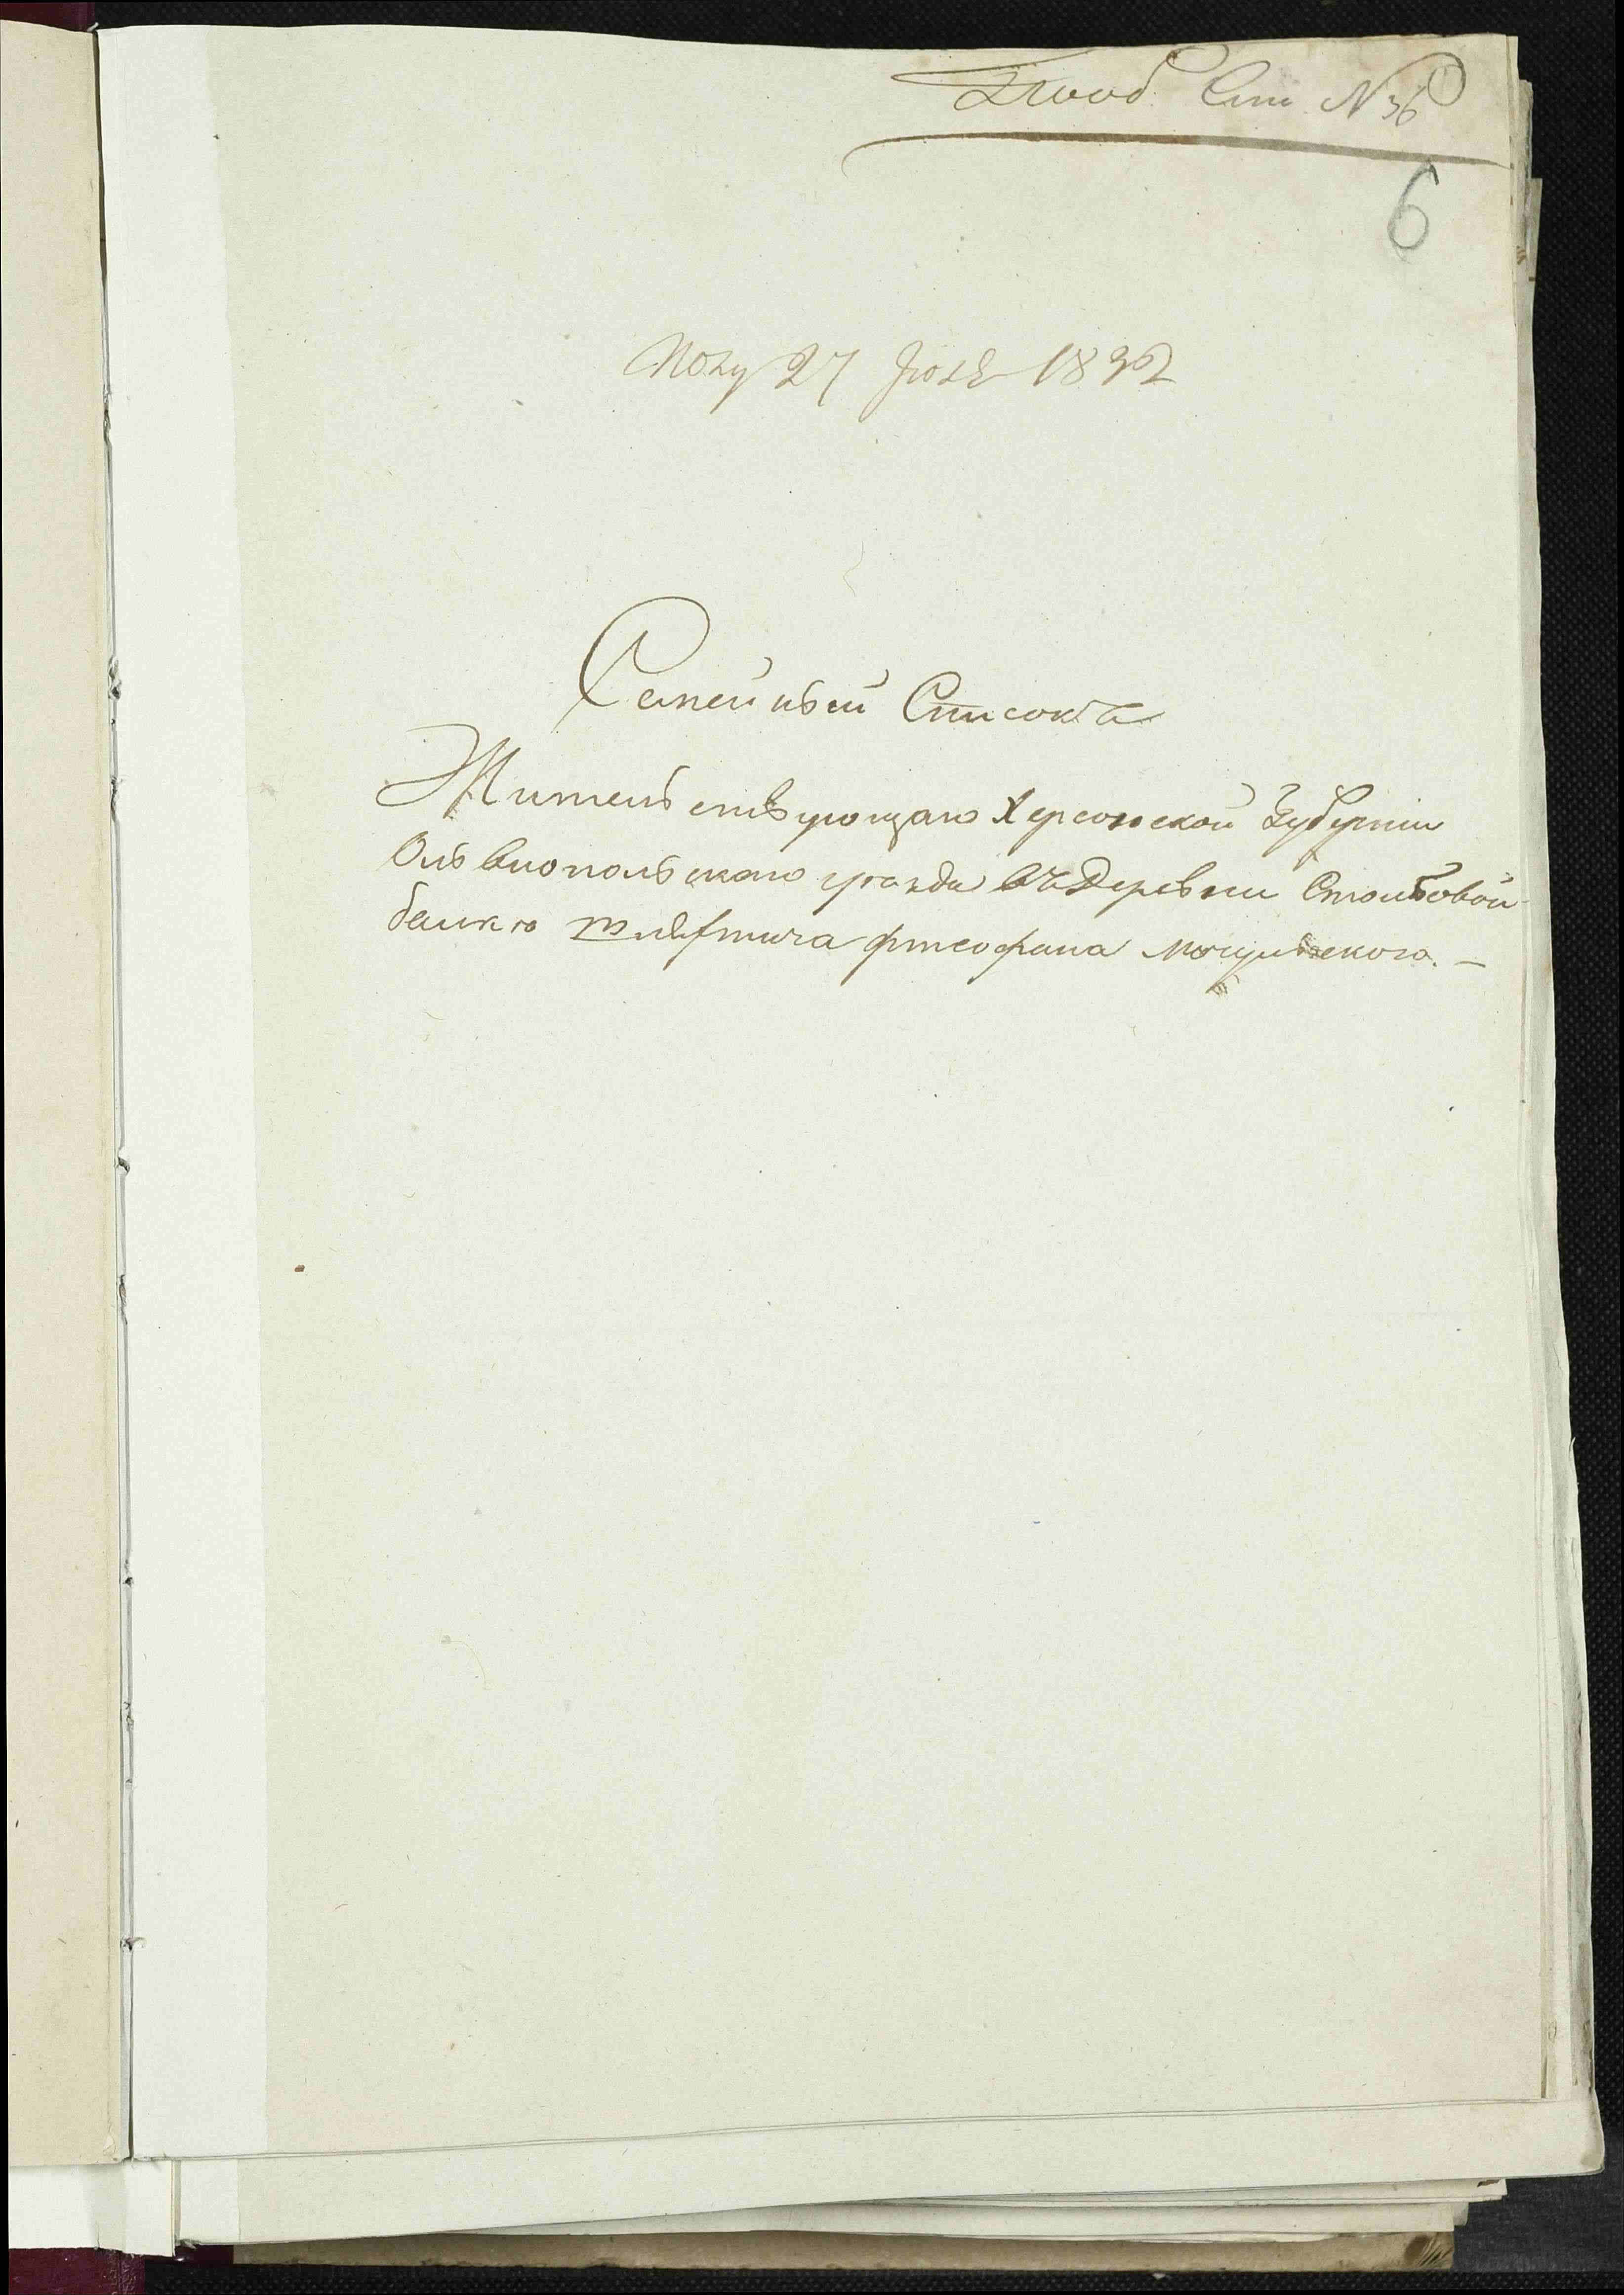 Спи. N 36
6
Полу 27 Июля 1832
Семейный Списокъ
Жительствующаго Херсонской Губерніи
Ольвиопольскаго уезда въ Деревни Столбовой
балкю шляхтича фтеофана